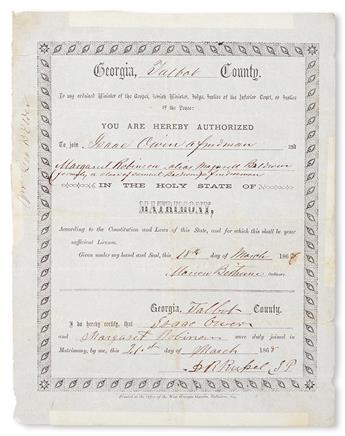 Georgia, Talbot County.
To any ordained Minister of the Gospel, Jewish Minister, Judge, Justice of the Inferior Court, or Justice
of the Peace:
YOU ARE HEREBY AUTHORIZED
To join Isaac Owen a freedman and
Margaret Robinson alias Baldwin
formerly a slave of
IN THE HOLY STATE OF
MATRIMONY,
According to the Constitution and Laws of this State, and for which this shall be your
sufficient License.
Given under my hand and Seal, this 18th day of March 186
Marion Bethune Ordinary.
Georgia, Talbot County.
I do hereby certify, that Isaac Owen
and Margaret Robinson were duly joined in
Matrimony, by me, this 21st day of March 186
J.P.
Printed at the Office of the West Georgia Gazette, Talbotton, Ga.